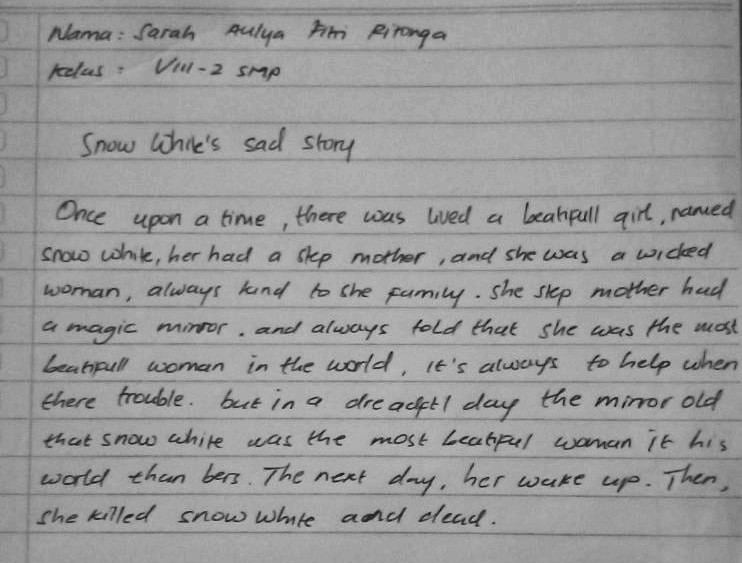 Nama : Sarah Aulya Fitri Rironga
Kelas : VIII-2 SMP
Snow White's sad story
Once upon a time, there was lived a beatifull girl, named
snow white, her had a step mother, and she was a wicked
woman, always kind to she family. she step mother had
a magic mirror. and always told that she was the most
beatifull woman in the world, it's always to help when
there trouble. but in a day the mirror old
that snow white was the most beatiful woman it his
world than bers. The next day, her wake up. Then,
she killed snow white and dead.